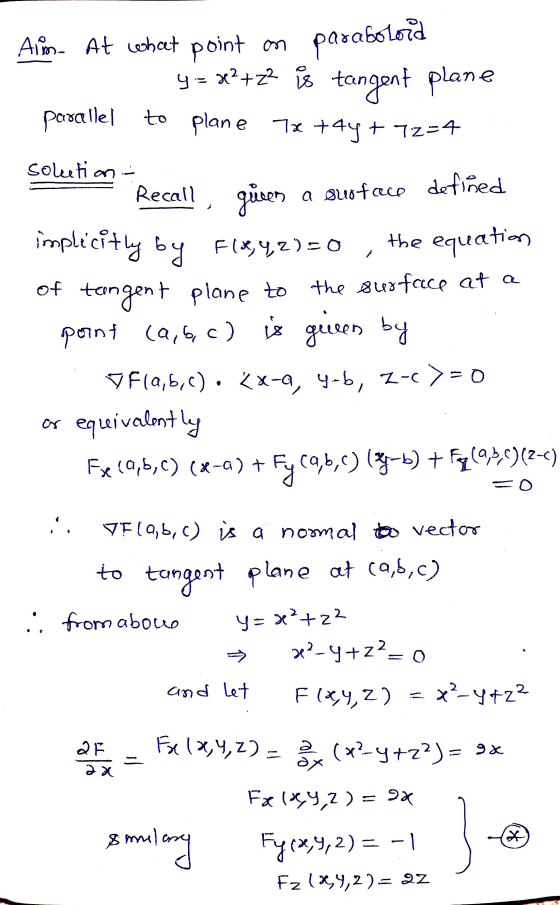 Aim- At what point on paraboloid
y = x²+z² is tangent plane
parallel to plane 7x +4y + 7z=4
solution -
Recall, given a surface defined
implicitly by F(x,y,z)=0, the equation
of tangent plane to the surface at a
point (a,b,c) is given by
∇F(a,b,c) . <x-a, y-b, z-c> = 0
or equivalently
Fx (a,b,c) (x-a) + Fy (a,b,c) (y-b) + Fz (a,b,c)(z-c)
= 0
∴ ∇F(a,b,c) is a normal vector
to tangent plane at (a,b,c)
∴ from above y = x²+z²
⇒ x²-y+z² = 0
and let F(x,y,z) = x²-y+z²
∂F/∂x = Fx (x,y,z) = ∂/∂x (x²-y+z²) = 2x
Fx (x,y,z) = 2x
Fy (x,y,z) = -1 } -(*)
Fz (x,y,z) = 2z